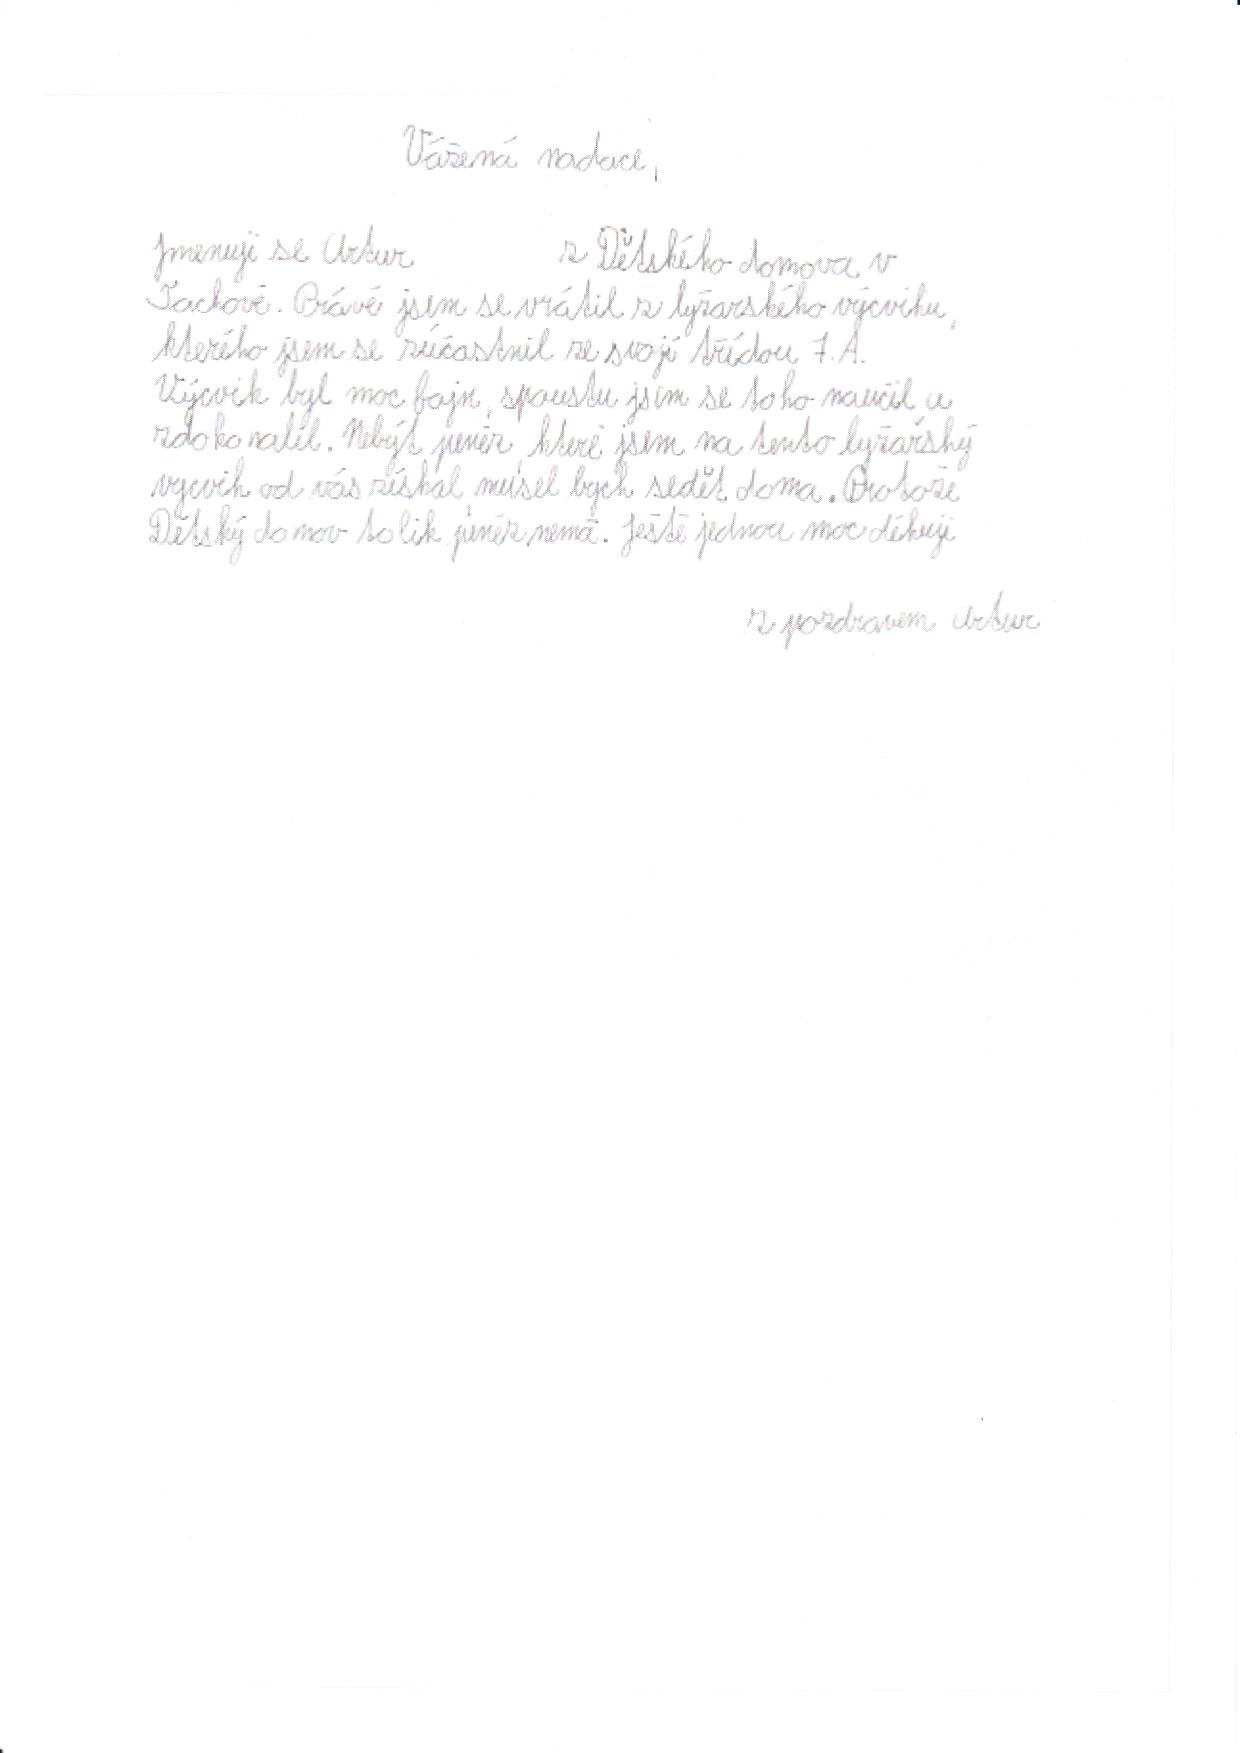 Vážená nadace,
Jmenuji se Artur z Dětského domova v
Tachově. Právě jsem se vrátil z lyžarského výcviku,
kterého jsem se zúčastnil ze svojí třídou 7.A.
Výcvik byl moc fajn, spoustu jsem se toho naučil a
zdokonalil. Nebýt peněz, které jsem na tento lyžařský
vycvik od vás získal, musel bych sedět doma. Protože
Dětský domov tolik peněz nemá. Ještě jednou moc děkuji
z pozdravem Artur